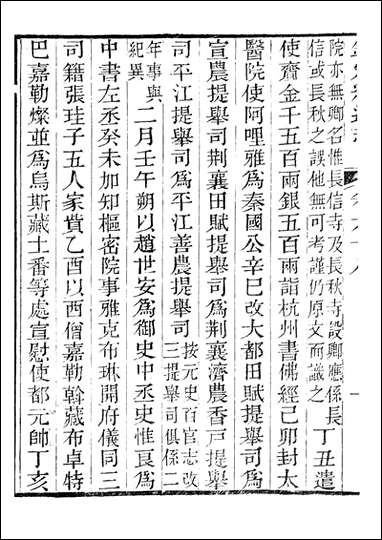 院亦無卿名惟長信寺及長秋寺設卿應係長
信或長秋之誤他無可考謹仍原文而識之
丁丑遣
使齎金千五百兩銀五百兩詣杭州書佛經己卯封太
醫院使阿哩雅為秦國公辛巳改大都田賦提舉司為
宣農提舉司荆襄田賦提舉司為荆襄濟農香戸提舉
司平江提舉司為平江善農提舉司
按元史百官志改
三提舉司俱係二
年事與
紀異
二月壬午朔以趙世安為御史中丞史惟良為
中書左丞癸未加知樞密院事雅克布琳開府儀同三
司籍張珪子五人家貲乙酉以西僧嘉勒斡藏布卓特
巴嘉勒燦並為烏斯藏土番等處宣慰使都元帥丁亥